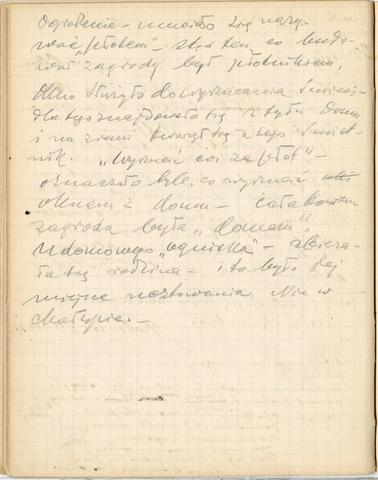 Ogrodzenie – musiało się nazy-
wać „płotem” – stąd ten, co budo-
wał zagrody był płotnikiem.
Okno służyło do wyrzucania śmieci –
dlatego znajdowało się z tyłu domu
i na ziemi tworzył się z tego śmiet-
nik. „Wyrzucić coś za płot” –
oznaczało tyle, co wyrzucić
oknem z domu – cała bowiem
zagroda była „domem”.
U domowego „ogniska” – zbiera-
ła się rodzina – i to było jej
miejsce ucztowania. Nie w
chałupie. –